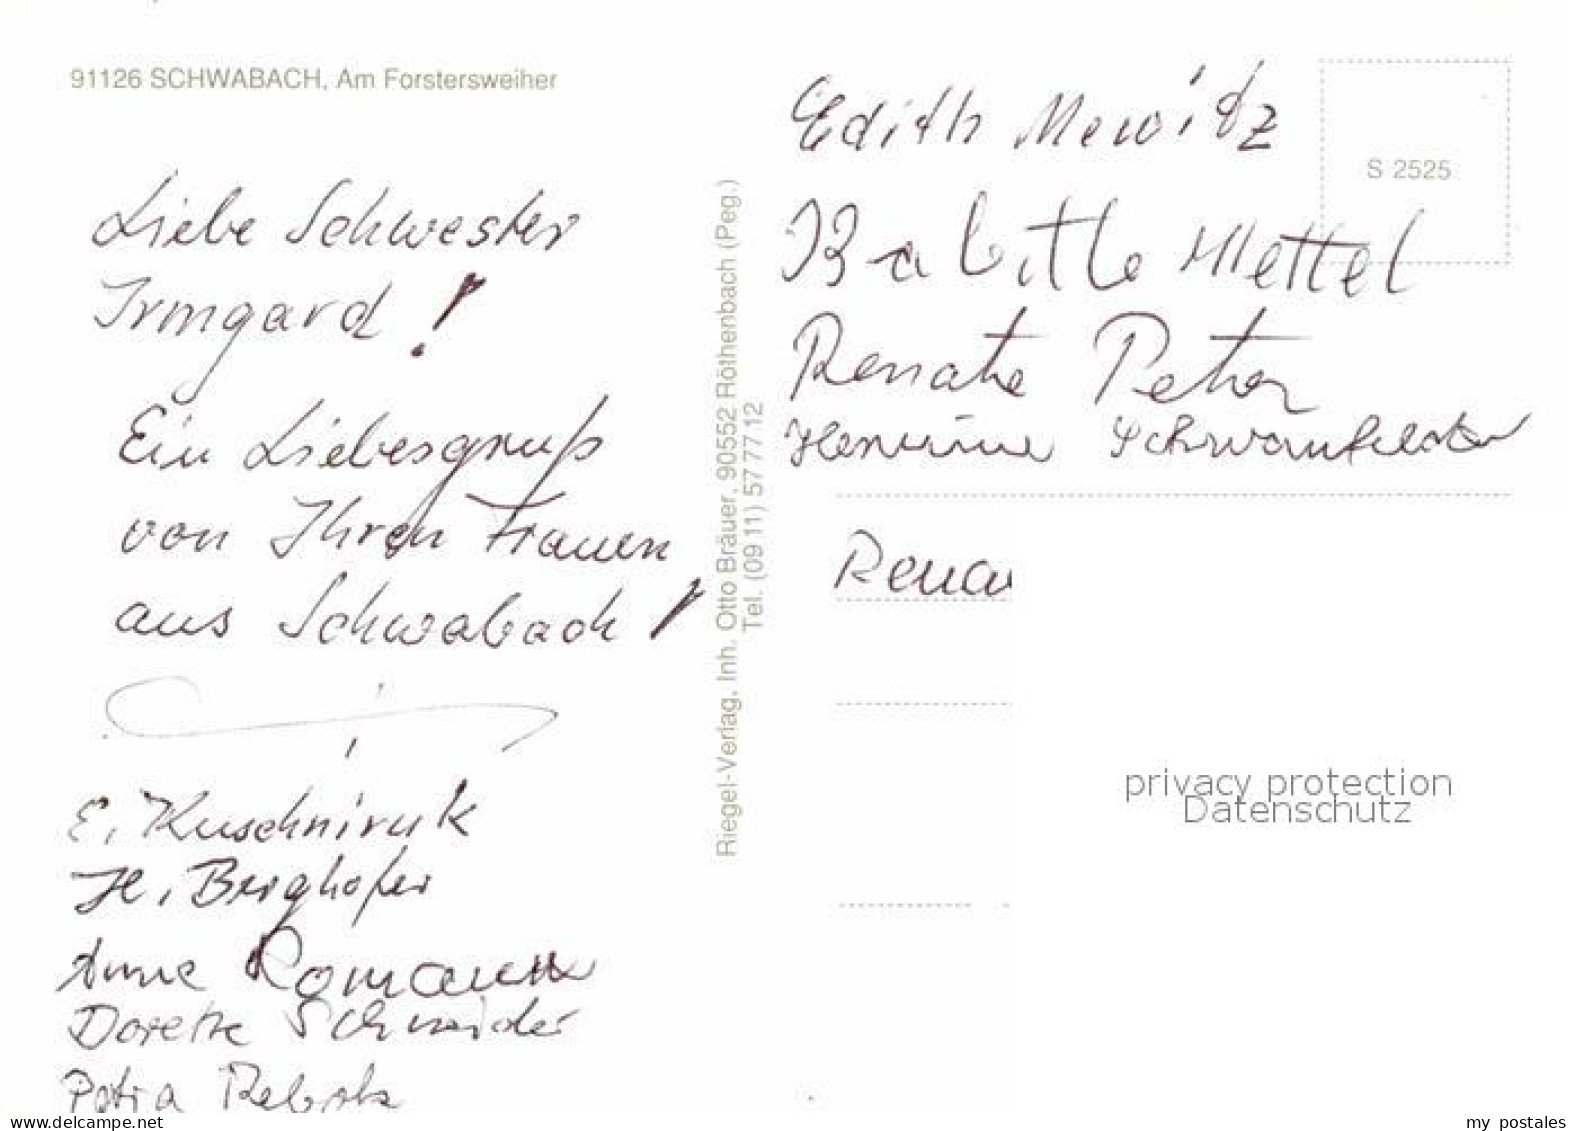 91126 SCHWABACH, Am Forstersweiher
Liebe Schwester
Irmgard !
Ein Liebesgruß
von Ihren Frauen
aus Schwabach !
E. Kuschniruk
H. Berghofer
Anne Romann
Dorette Schneider
Petra
Riegel-Verlag, Inh. Otto Bräuer, 90552 Röthenbach (Peg.)
Tel. (09 11) 57 77 12
Edith Mewitz
S 2525
Babette Mettel
Renate Peter
Hermine
Rena
privacy protection
Datenschutz
www.delcampe.net
my postales